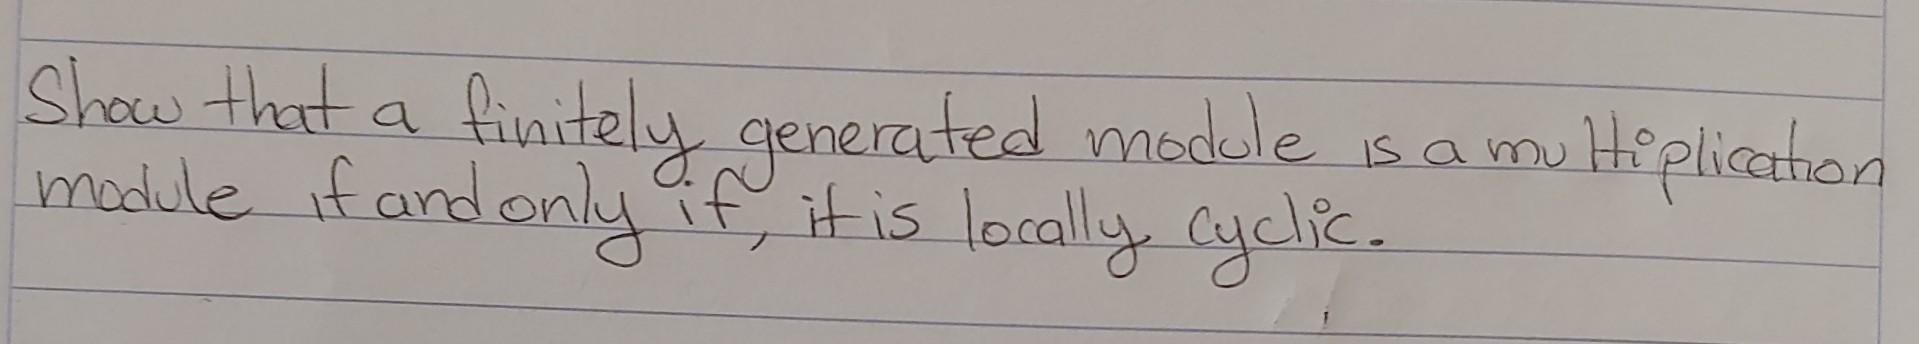 Show that a finitely generated module is a multiplication
module if and only if, it is locally cyclic.